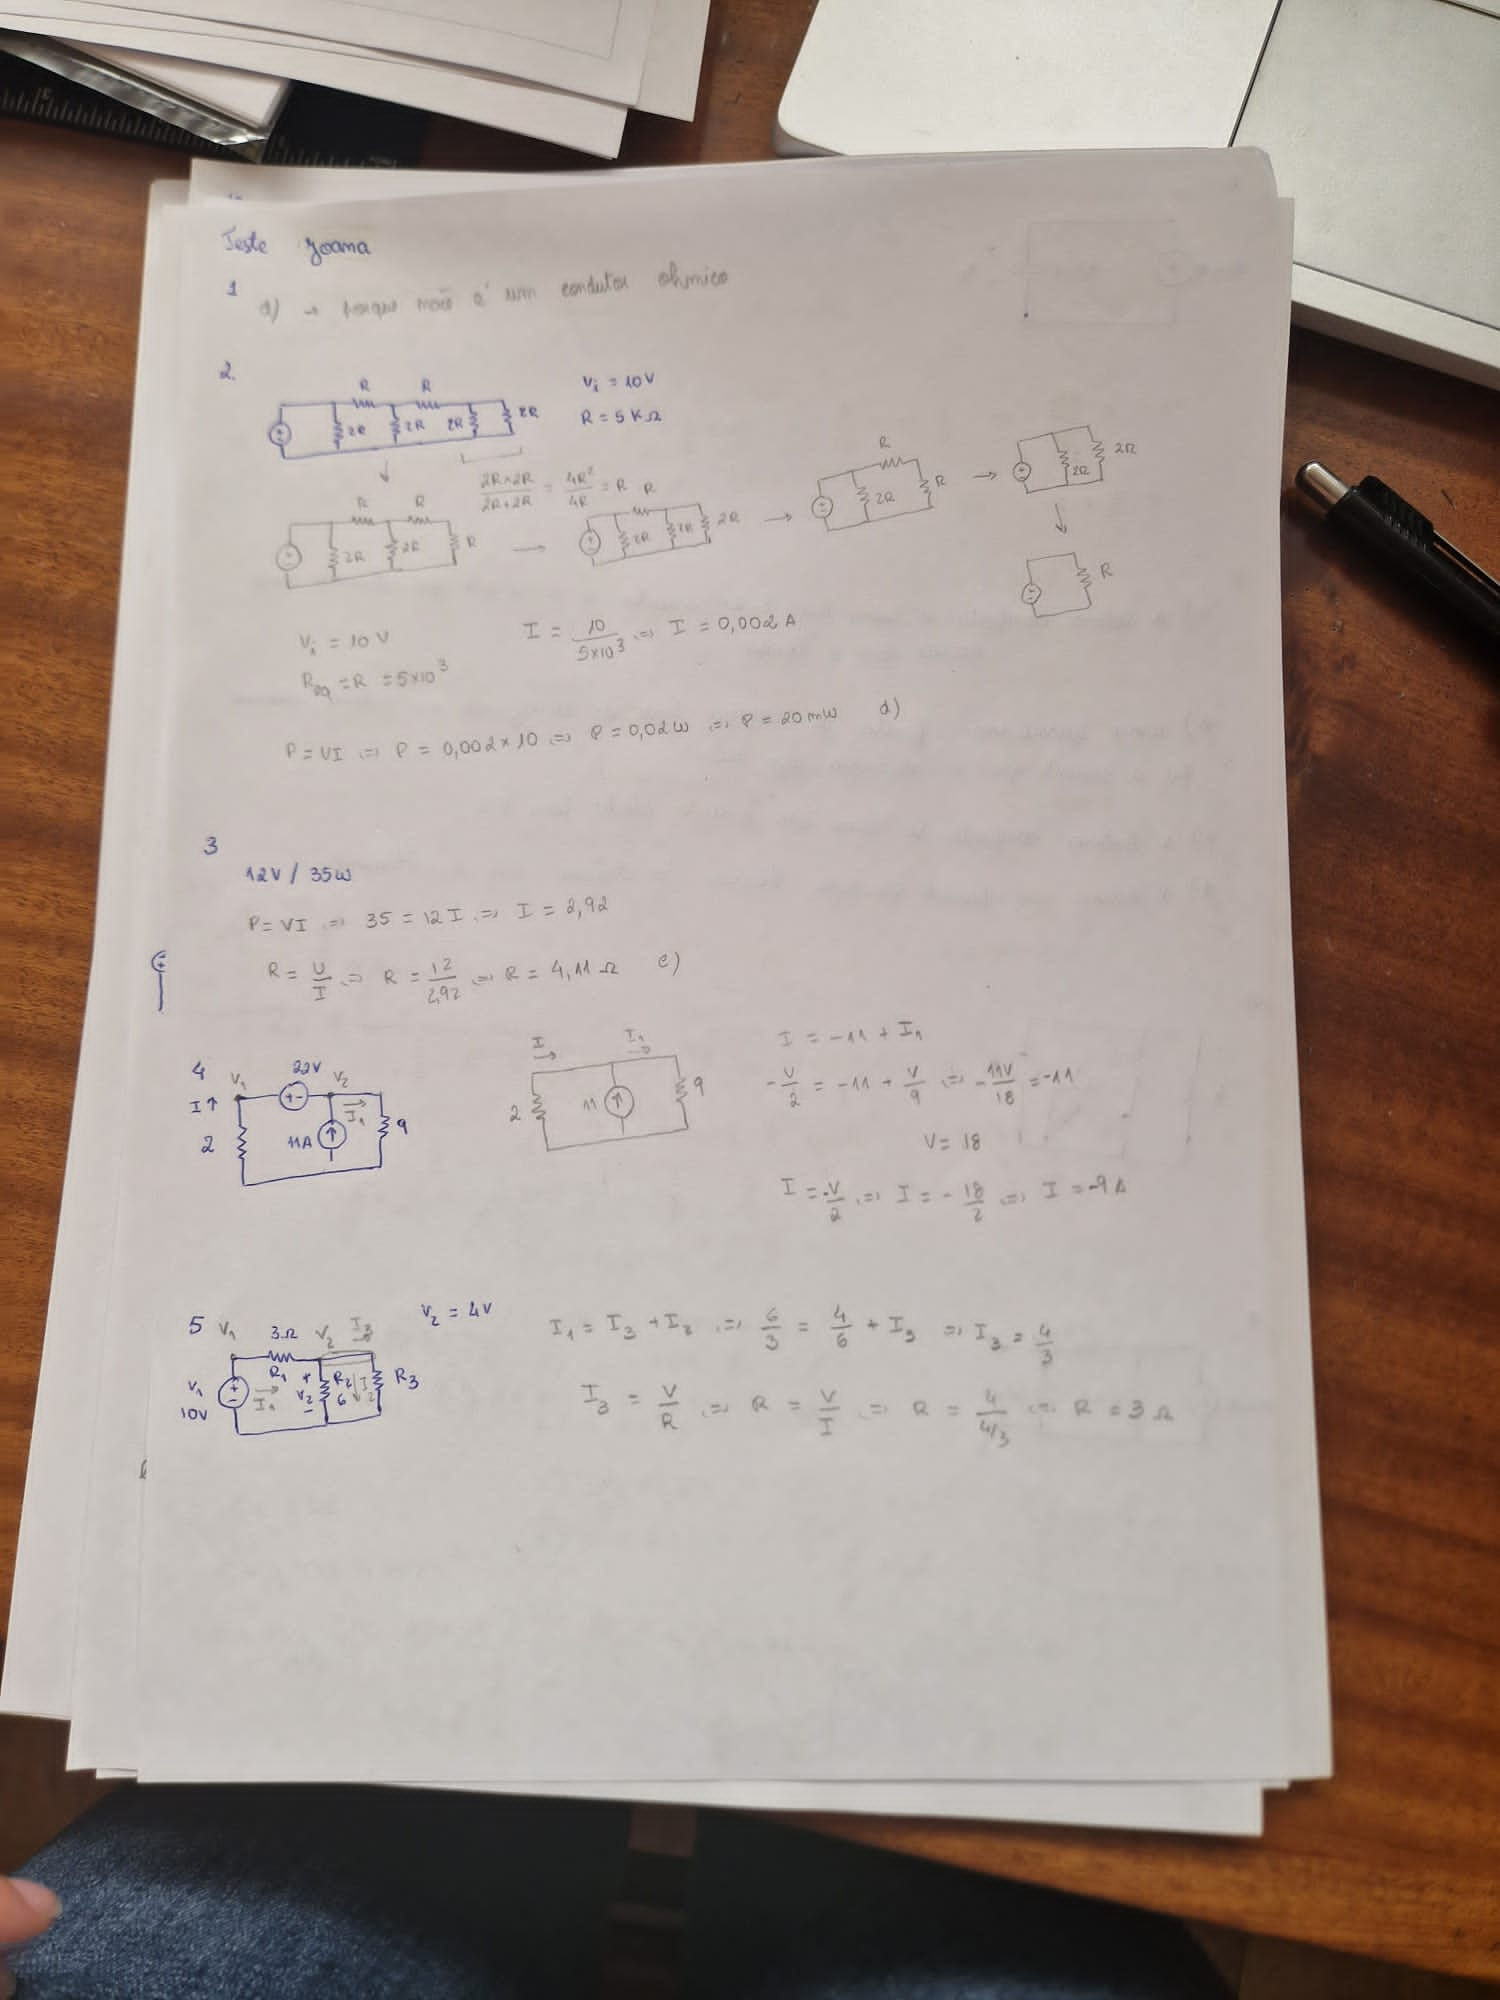 Teste Joana
1
d) → porque não é um condutor ohmico
2.
R R
2R 2R 2R 2R
Vi = 10V
R = 5 KΩ
2R×2R/2R+2R = 4R²/4R = R
R R
2R 2R R
R
2R 2R 2R
R
2R R
2R 2R
R
Vi = 10 V
Req = R = 5×10³
I = 10/5×10³ ⇔ I = 0,002 A
P = VI ⇔ P = 0,002×10 ⇔ P = 0,02W ⇔ P = 20 mW d)
3
12V / 35W
P = VI ⇔ 35 = 12 I ⇔ I = 2,92
R = U/I ⇔ R = 12/2,92 ⇔ R = 4,11 Ω c)
4 V1 22V V2
I ↑ I1
2 11A 9
I I1
2 11 9
I = -11 + I1
-V/2 = -11 + V/9 ⇔ -11V/18 = -11
V = 18
I = -V/2 ⇔ I = -18/2 ⇔ I = -9 A
5 V1 3Ω V2 I3
V2 = 4V
R1 + R2 I2 R3
V1 I1 V2 6
10V -
I1 = I3 + I2 ⇔ 6/3 = 4/6 + I3 ⇔ I3 = 4/3
I3 = V/R ⇔ R = V/I ⇔ R = 4/4/3 ⇔ R = 3 Ω